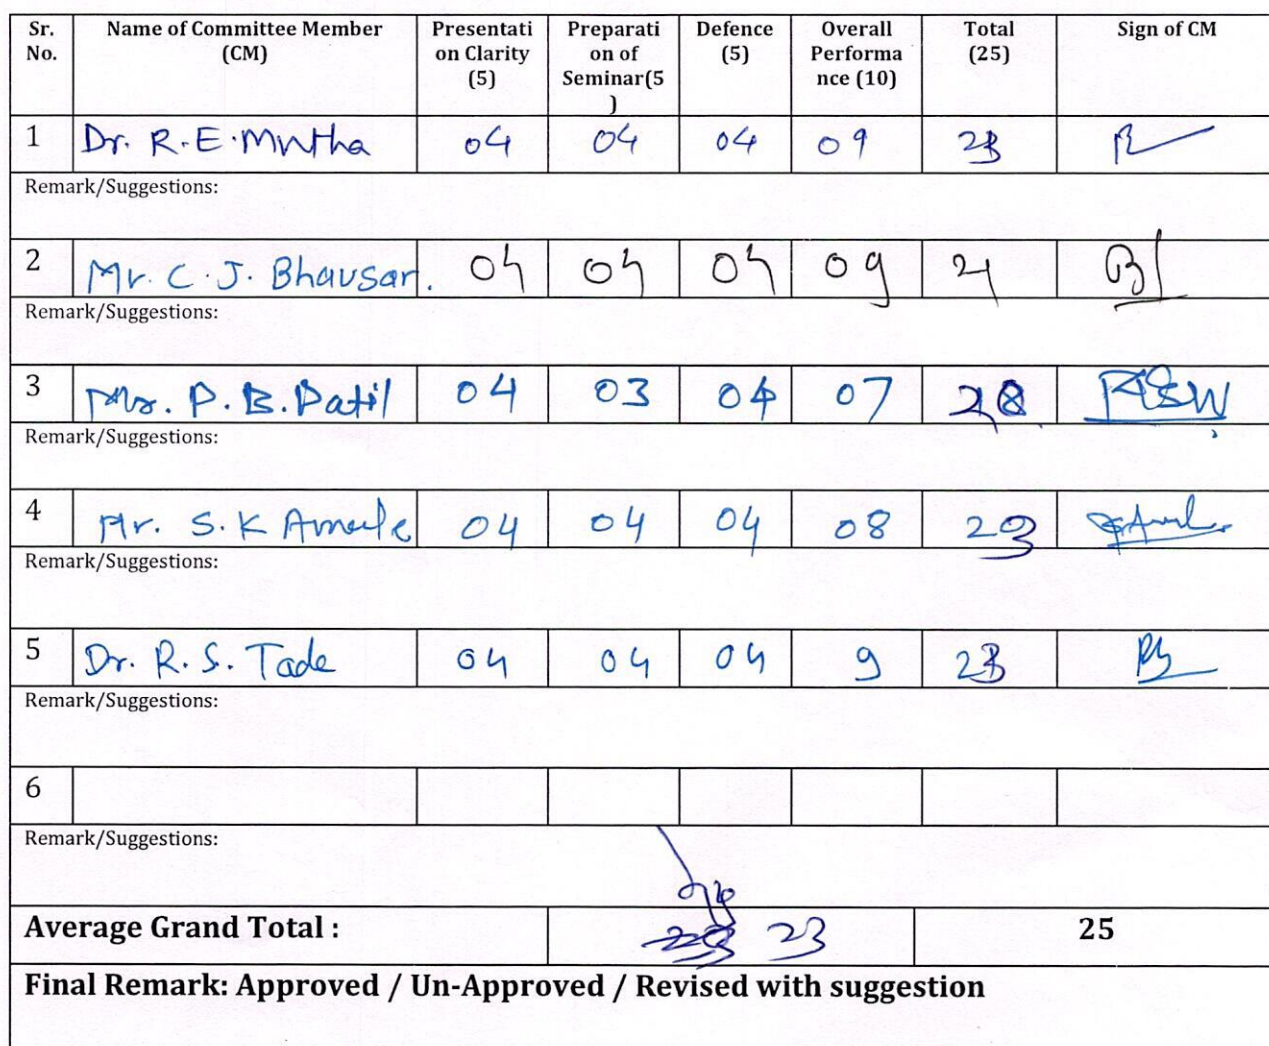 Sr. No. Name of Committee Member (CM) Presentati on Clarity (5) Preparati on of Seminar(5 ) Defence (5) Overall Performa nce (10) Total (25) Sign of CM
1 Dr. R.E.Mutha 04 04 04 09 23
Remark/Suggestions:
2 Mr. C.J. Bhavsar. 04 04 04 09 21
Remark/Suggestions:
3 Mr. P.B.Patil 04 03 04 07
Remark/Suggestions:
4 Mr. S.K 04 04 04 08 23
Remark/Suggestions:
5 Dr. R.S. Tade 04 04 04 9 23
Remark/Suggestions:
6
Remark/Suggestions:
Average Grand Total : 23 25
Final Remark: Approved / Un-Approved / Revised with suggestion